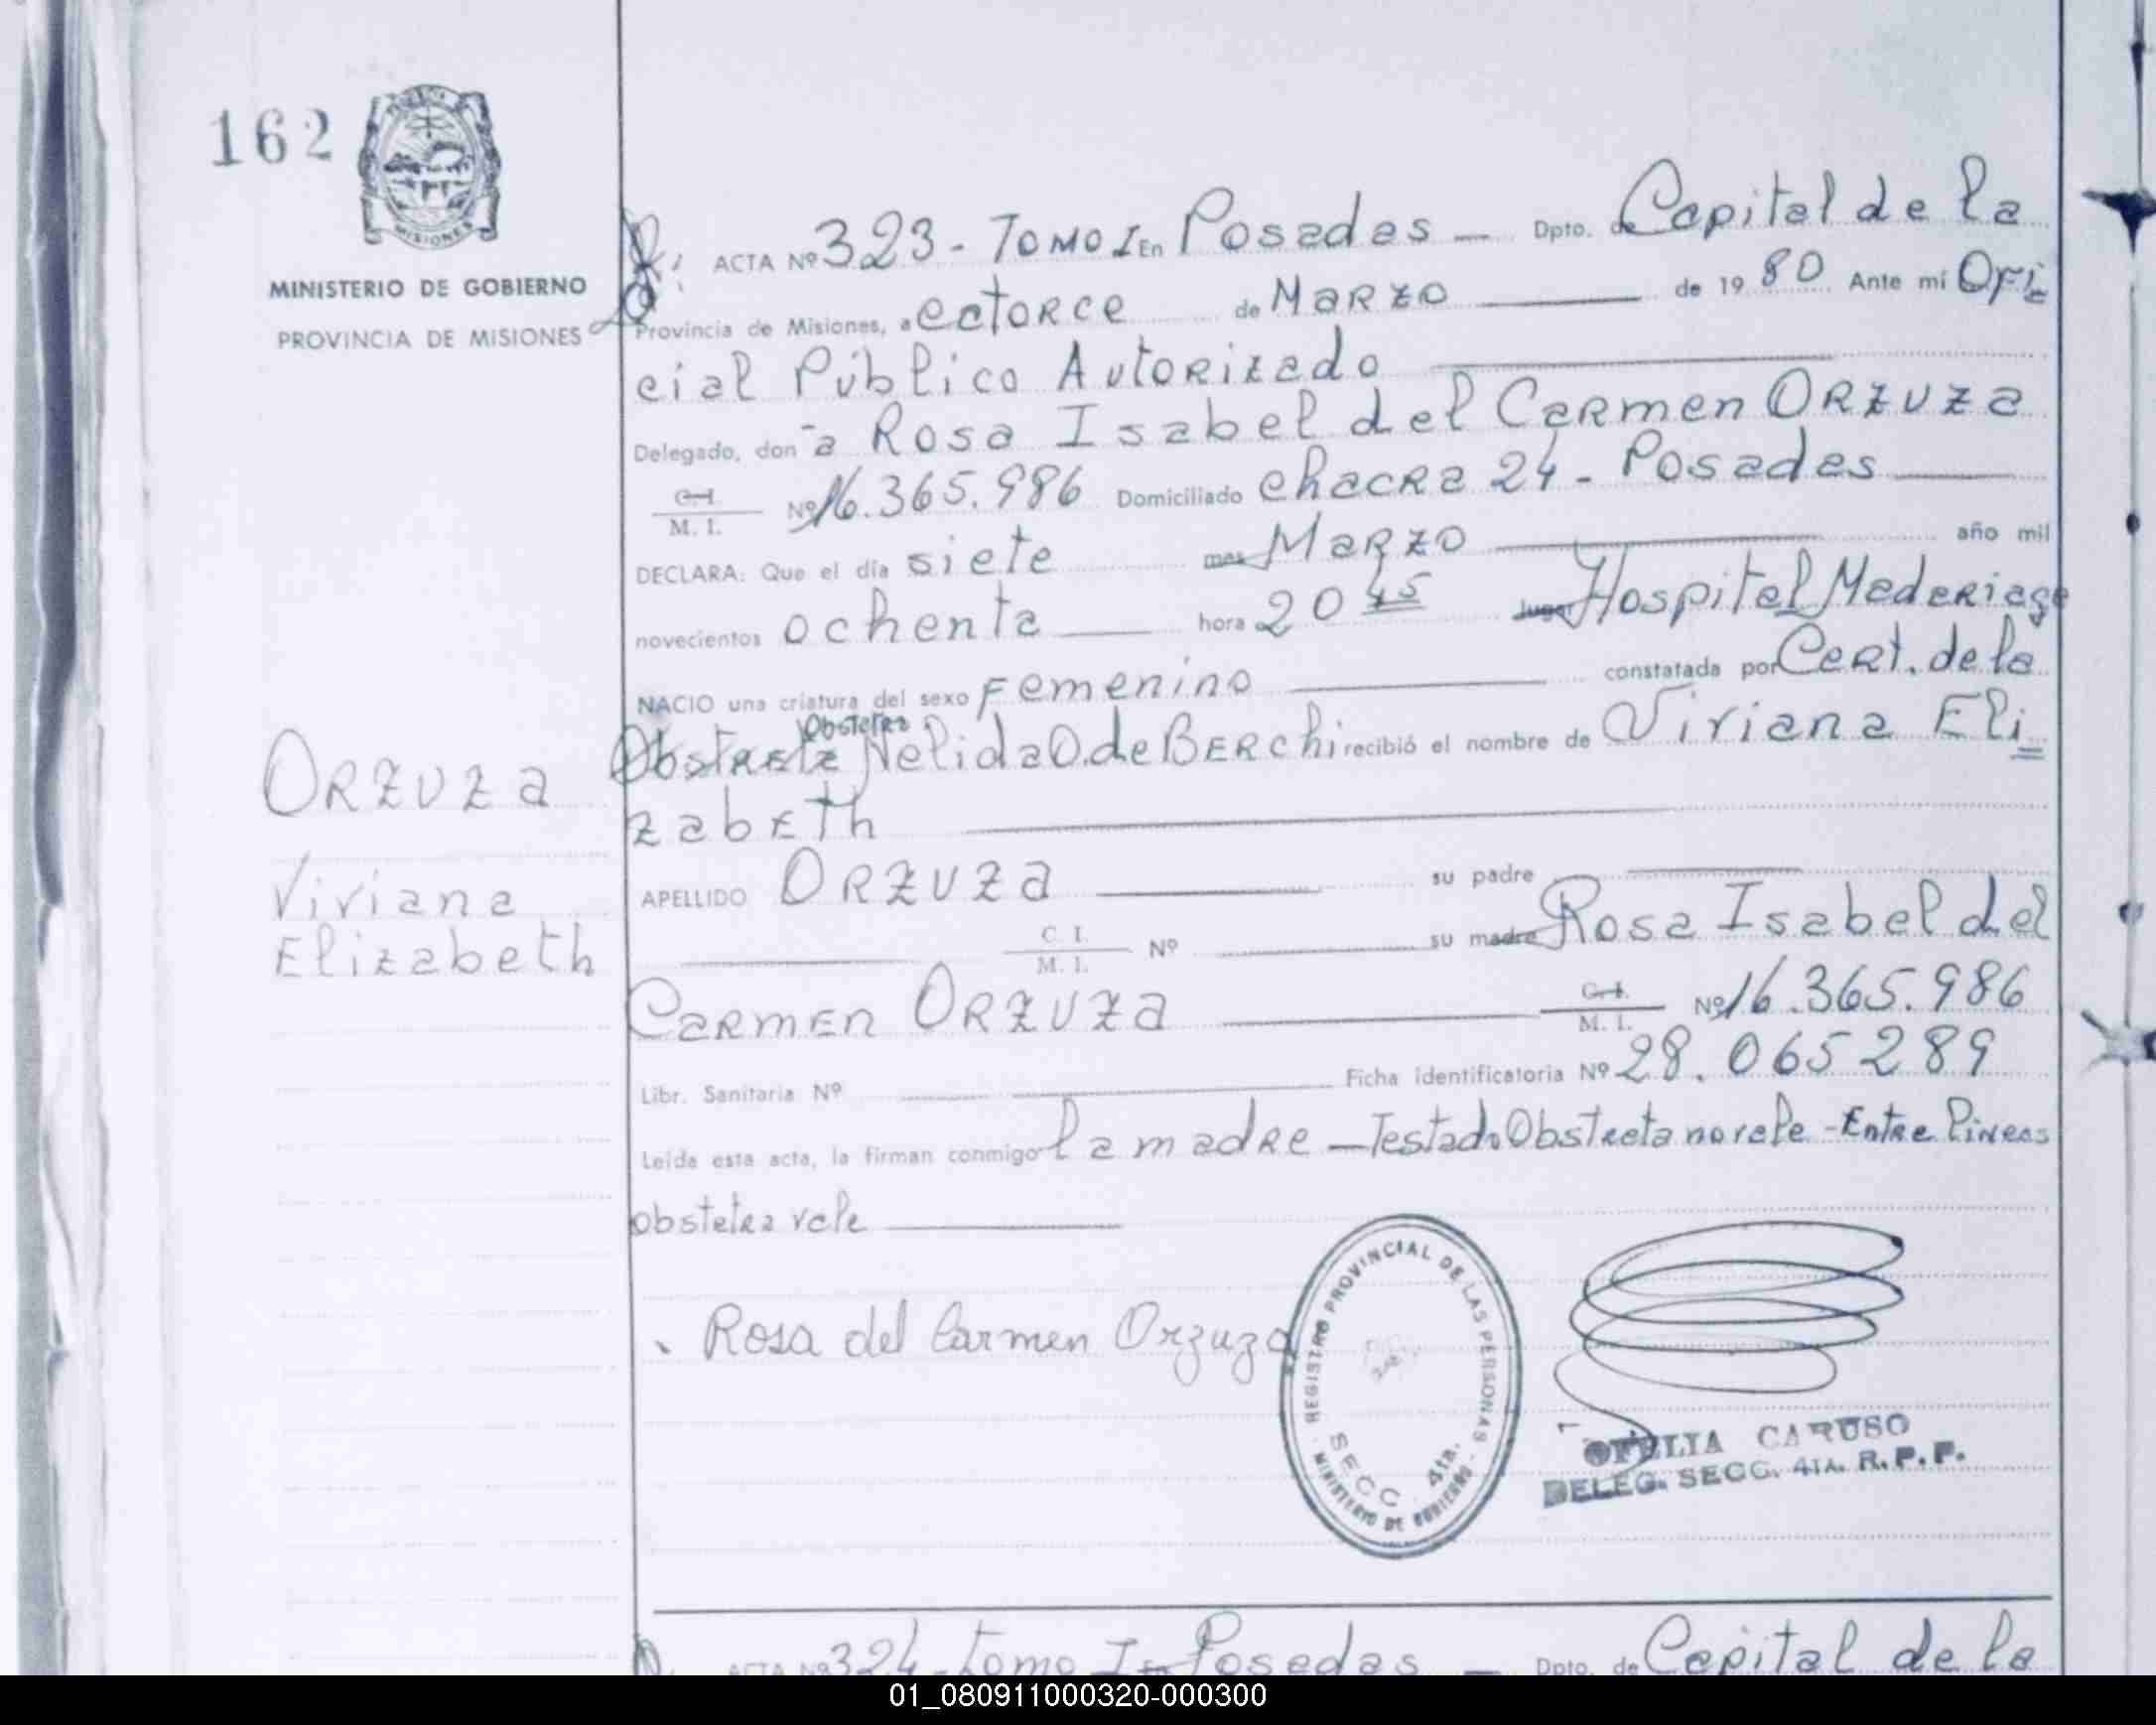 162
MISIONES
MINISTERIO DE GOBIERNO
PROVINCIA DE MISIONES
ACTA Nº 323 - TOMO I En Posadas — Dpto. de Capital de la
Provincia de Misiones, a catorce de Marzo de 1980 Ante mí Ofi
cial Público Autorizado
Delegado, doña Rosa Isabel del Carmen Orzuza
C.I. M. I. Nº 16.365.986 Domiciliado chacra 24 - Posadas
DECLARA: Que el día siete mes Marzo año mil
novecientos ochenta hora 20 45 lugar Hospital Madariaga
NACIO una criatura del sexo Femenino constatada por Cert. de la
Obstetra
Obstreta Nelida O. de Berchi recibió el nombre de Viviana Eli
zabeth
APELLIDO Orzuza su padre
C. I. M. I. Nº su madre Rosa Isabel del
Carmen Orzuza C.I. M. I. Nº 16.365.986
Libr. Sanitaria Nº Ficha identificatoria Nº 28.065289
Leída esta acta, la firman conmigo la madre — Testado Obstreta no vale - Entre lineas
obstetra vale
Orzuza
Viviana
Elizabeth
Rosa del Carmen Orzuza
REGISTRO PROVINCIAL DE LAS PERSONAS
SECC. 4ta.
MINISTERIO DE GOBIERNO
OFELIA CARUSO
DELEG. SECC. 4TA. R.P.P.
ACTA Nº 324 - Tomo I En Posadas — Dpto. de Capital de la
01_080911000320-000300